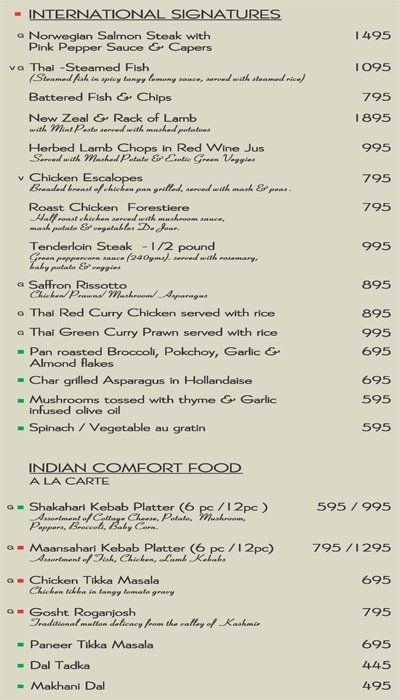 INTERNATIONAL SIGNATURES
G Norwegian Salmon Steak with 1495
Pink Pepper Sauce & Capers
V G Thai -Steamed Fish 1095
(Steamed fish in spicy tangy lemony sauce, served with steamed rice)
Battered Fish & Chips 795
New Zeal & Rack of Lamb 1895
with Mint Pesto served with mashed potatoes
Herbed Lamb Chops in Red Wine Jus 995
Served with Mashed Potato & Exotic Green Veggies
V Chicken Escalopes 795
Breaded breast of chicken pan grilled, served with mash & peas .
Roast Chicken Forestiere 795
Half roast chicken served with mushroom sauce,
mash potato & vegetables De Jour.
Tenderloin Steak -1/2 pound 995
Green peppercorn sauce (240gms). served with rosemary,
baby potato & veggies
G Saffron Rissotto 895
Chicken/Prawns/ Mushroom/ Asparagus
G Thai Red Curry Chicken served with rice 895
G Thai Green Curry Prawn served with rice 995
Pan roasted Broccoli, Pokchoy, Garlic & 695
Almond flakes
Char grilled Asparagus in Hollandaise 695
Mushrooms tossed with thyme & Garlic 595
infused olive oil
Spinach / Vegetable au gratin 595
INDIAN COMFORT FOOD
A LA CARTE
G Shakahari Kebab Platter (6 pc /12pc ) 595 / 995
Assortment of Cottage Cheese, Potato, Mushroom,
Peppers, Broccoli, Baby Corn.
G Maansahari Kebab Platter (6 pc /12pc) 795 /1295
Assortment of Fish, Chicken, Lamb Kebabs
G Chicken Tikka Masala 695
Chicken tikka in tangy tomato gravy
G Gosht Roganjosh 795
Traditional mutton delicacy from the valley of Kashmir
Paneer Tikka Masala 695
Dal Tadka 445
Makhani Dal 495